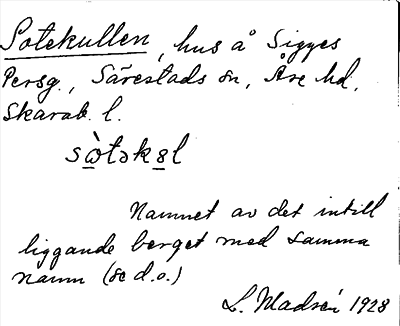 Sotekullen, hus å Sigges
Persg., Särestads sn, Åse hd,
Skarab. l.
sὼtəkәl
Namnet av det intill
liggande berget med samma
namn (se d.o.)
L. Madsén 1928